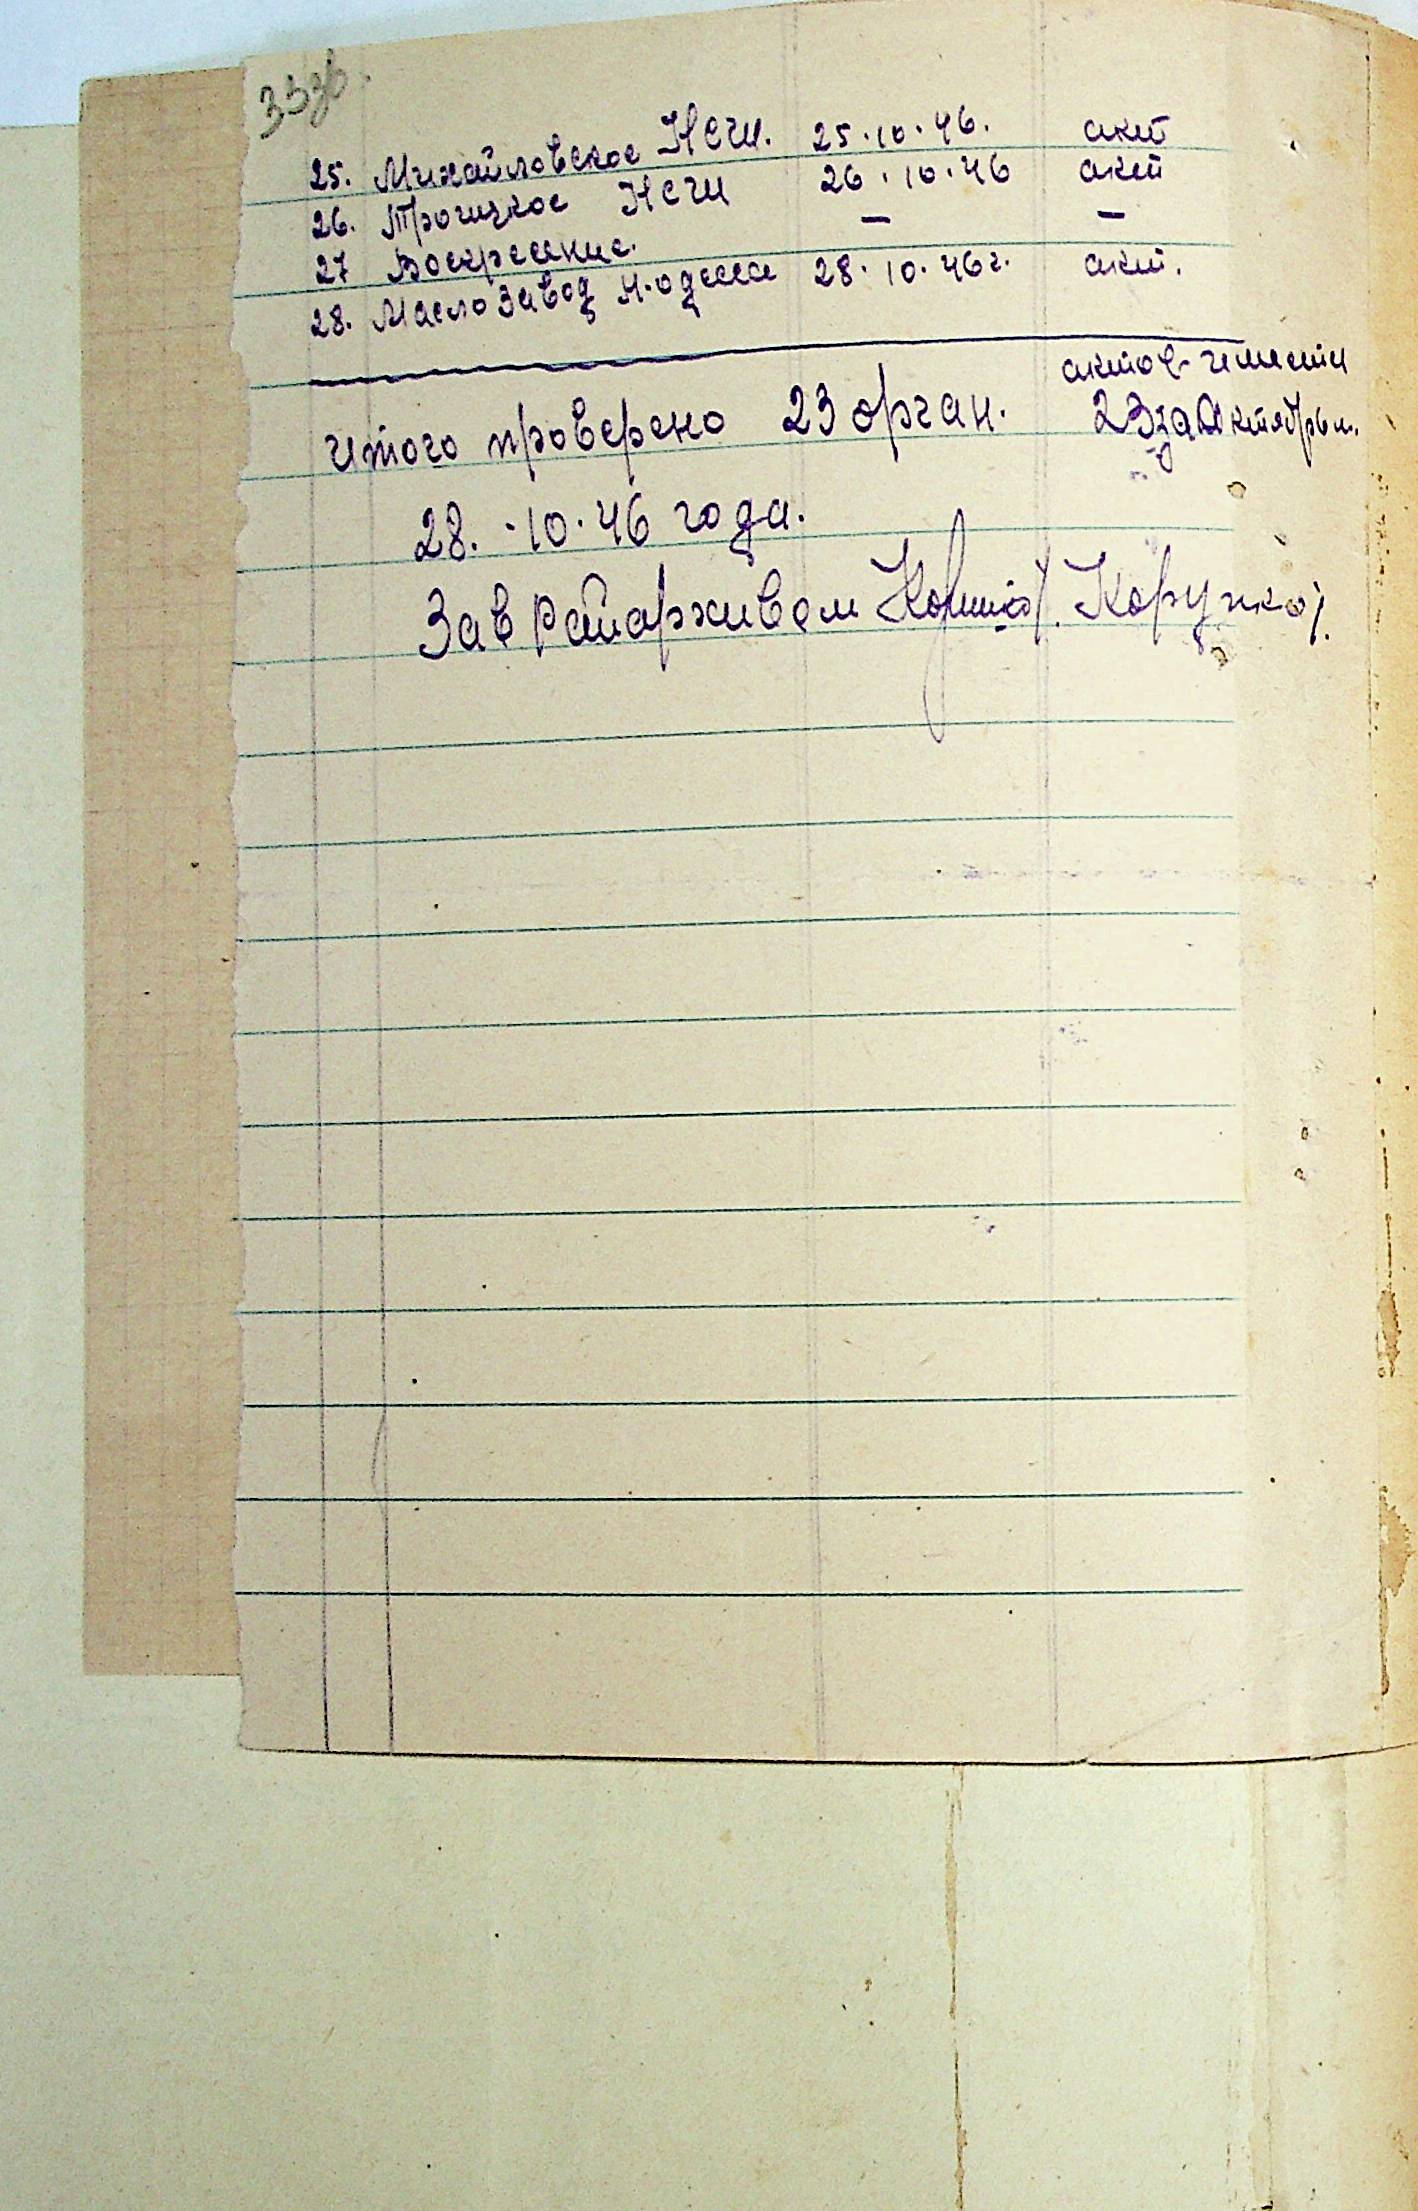 33об.
25. Михайловское НСШ. 25.10.46. акт
26. Троицкое НСШ 26.10.46 акт
27 Воскресение. – –
28. Маслозавод Н.одесса 28.10.46г. акт.
Итого проверено 23 орган. актов-имеется
23 за Октябрь м.
28.10.46 года.
Зав Райархивом /. Коружко/.